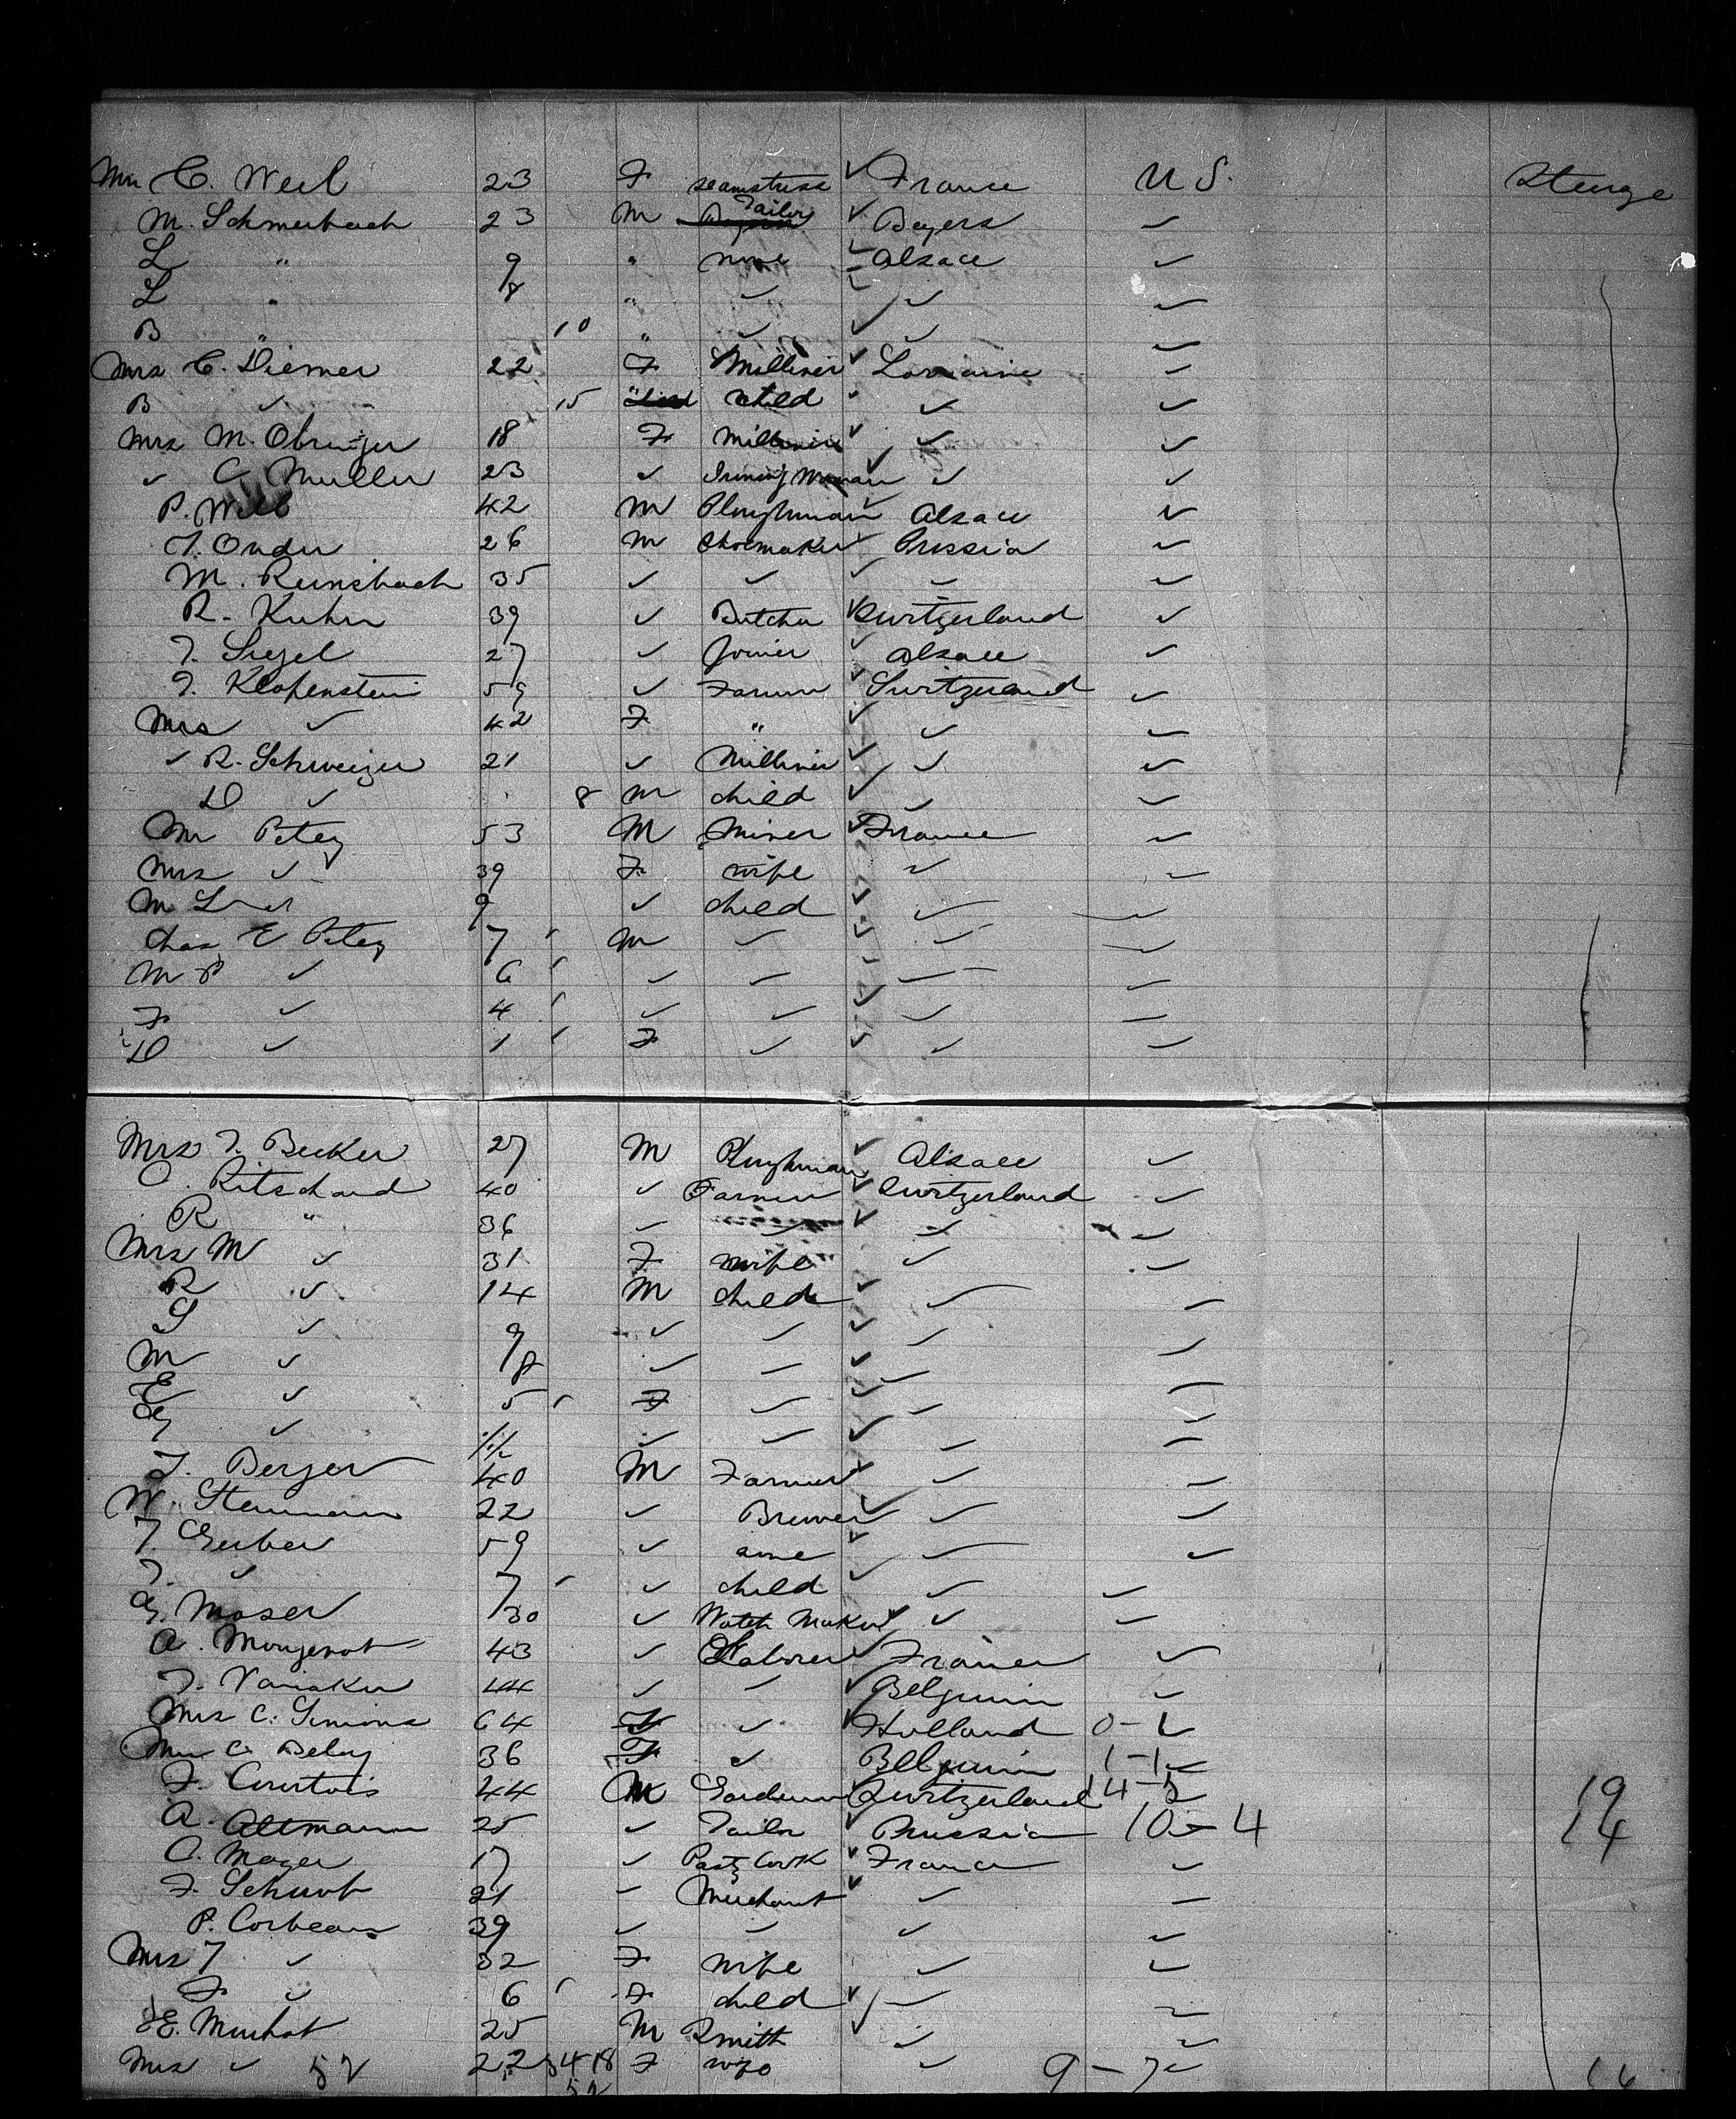 C. Weil 23 F seamstress ✓ France U S.
M. Schmerbach 23 M Tailor ✓ Bayers ✓
L " 9 " none ✓ Alsace ✓
L " 8 " ✓ ✓ ✓
B " 10 " ✓ ✓ ✓ ✓
Mrs C. Diemer 22 F Milliner ✓ Lorraine ✓
B ✓ 15 child ✓ ✓
Mrs M. 18 F Milliner ✓ ✓ ✓
✓ C Muller 23 ✓ ✓ ✓ ✓
P. Weil 42 M Ploughman ✓ Alsace ✓
26 M Shoemaker ✓ Prussia ✓
M. 35 ✓ ✓ ✓ ✓ ✓
R. Kuhn 39 ✓ Butcher ✓ Switzerland ✓
J. Siegel 27 ✓ Joiner ✓ Alsace ✓
J. Klopenstein 59 ✓ Farmer ✓ Switzerland ✓
Mrs ✓ 42 F " ✓ ✓ ✓
✓ R. Schweizer 21 ✓ Milliner ✓ ✓ ✓
D ✓ 8 M child ✓ ✓ ✓
Mr Petey 53 M Miner ✓ France ✓
Mrs ✓ 39 F wife ✓ ✓
M 9 ✓ child ✓ ✓ ✓
Chas E Petey 7 M ✓ ✓ ✓ ✓
M P ✓ 6 ✓ ✓ ✓ ✓ ✓
F ✓ 4 ✓ ✓ ✓ ✓ ✓
D ✓ 1 F ✓ ✓ ✓ ✓
Mrs J. Becker 27 M Ploughman ✓ Alsace ✓
C. Ritschard 40 ✓ Farmer ✓ Switzerland ✓
R " 36 ✓ ✓ ✓ ✓ ✓
Mrs M ✓ 31 F wife ✓ ✓
R ✓ 14 M child ✓ ✓ ✓
S ✓ 9 ✓ ✓ ✓ ✓ ✓
M ✓ 8 ✓ ✓ ✓ ✓ ✓
E ✓ 5 F ✓ ✓ ✓ ✓
G ✓ ✓ ✓ ✓ ✓ ✓
J. Berger 40 M Farmer ✓ ✓ ✓
W. 22 ✓ Brewer ✓ ✓ ✓
J. Gerber 59 ✓ ✓ ✓ ✓
J. ✓ 7 ✓ child ✓ ✓ ✓
G. Moser 30 ✓ Watch Maker ✓ ✓ ✓
A. Mougenot 43 ✓ Laborer ✓ France ✓
J. 44 ✓ ✓ ✓ Belguim ✓
Mrs C. Simons 64 F ✓ ✓ Holland 0-1 ✓
C. Delay 36 F ✓ Belguim 1-1 ✓
F. Courtois 44 M Gardener Switzerland 14-5
19
A. Altmann 25 ✓ Tailor ✓ Prussia 10-4
14
C. Mager 17 ✓ Pasty Cook ✓ France ✓
F. 21 ✓ Merchant ✓ ✓ ✓
P. Corbeau 39 ✓ ✓ ✓ ✓
Mrs J ✓ 32 F wife ✓ ✓
F ✓ 6 F child ✓ ✓ ✓
E. 25 M Smith ✓ ✓ ✓
Mrs ✓ 52 22 34 18 F ✓ 9-7 ✓
52